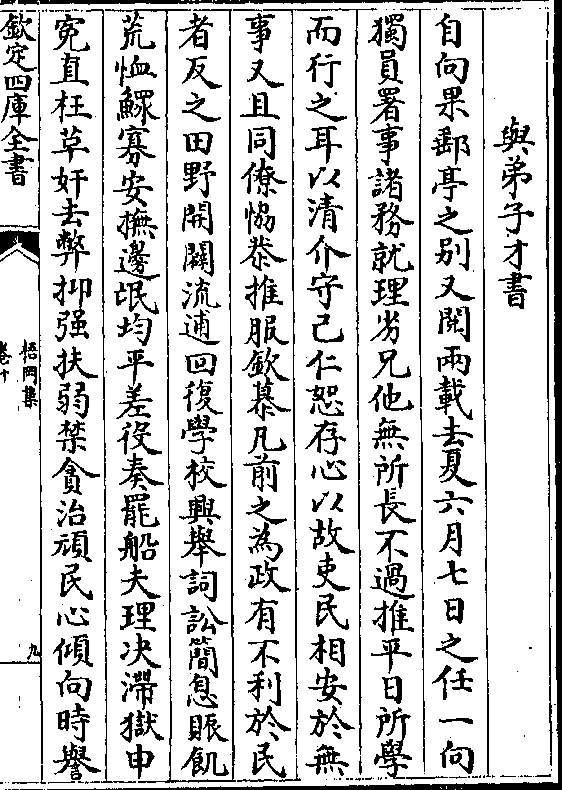 與弟子才書
自向果郵亭之别又閱兩載去夏六月七日之任一向
獨員署事諸務就理劣兄他無所長不過推平日所學
而行之耳以清介守己仁恕存心以故吏民相安於無
事又且同僚恊恭推服欽慕凡前之為政有不利於民
者反之田野開闢流逋回復學校興舉詞訟簡息賑飢
荒恤鰥寡安撫邊氓均平差役奏罷船夫理决滯獄申
寃直枉草奸去弊抑强扶弱禁貪治頑民心傾向時譽
欽定四庫全書
梧岡集
卷十
九